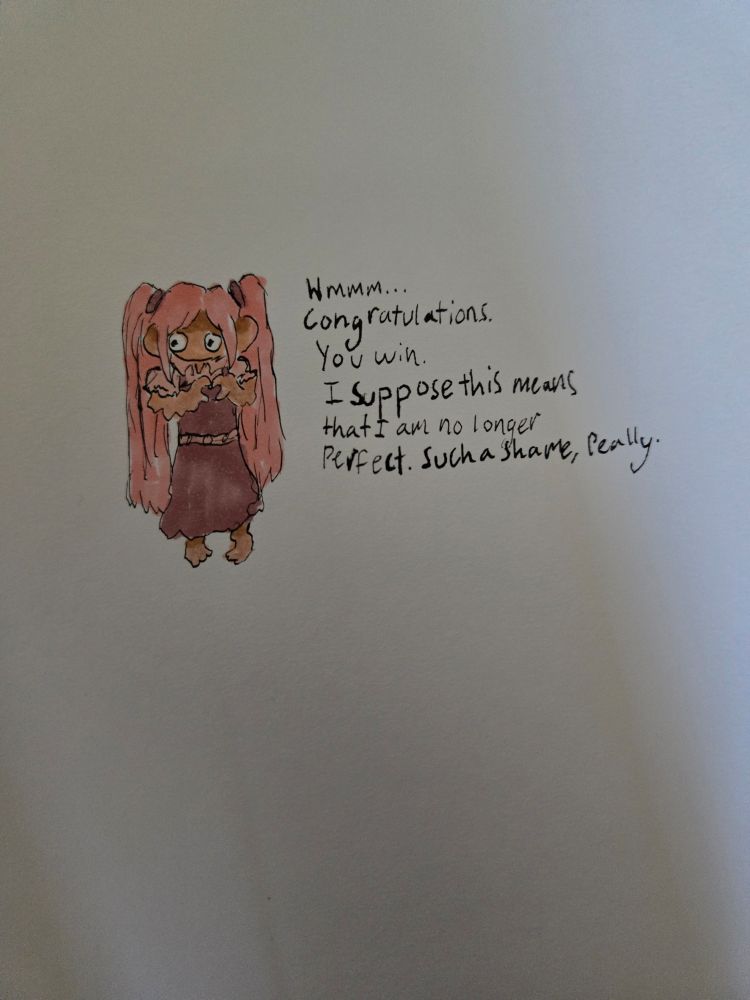 Hmmm...
Congratulations.
You win.
I suppose this means
that I am no longer
Perfect. Such a shame, really.